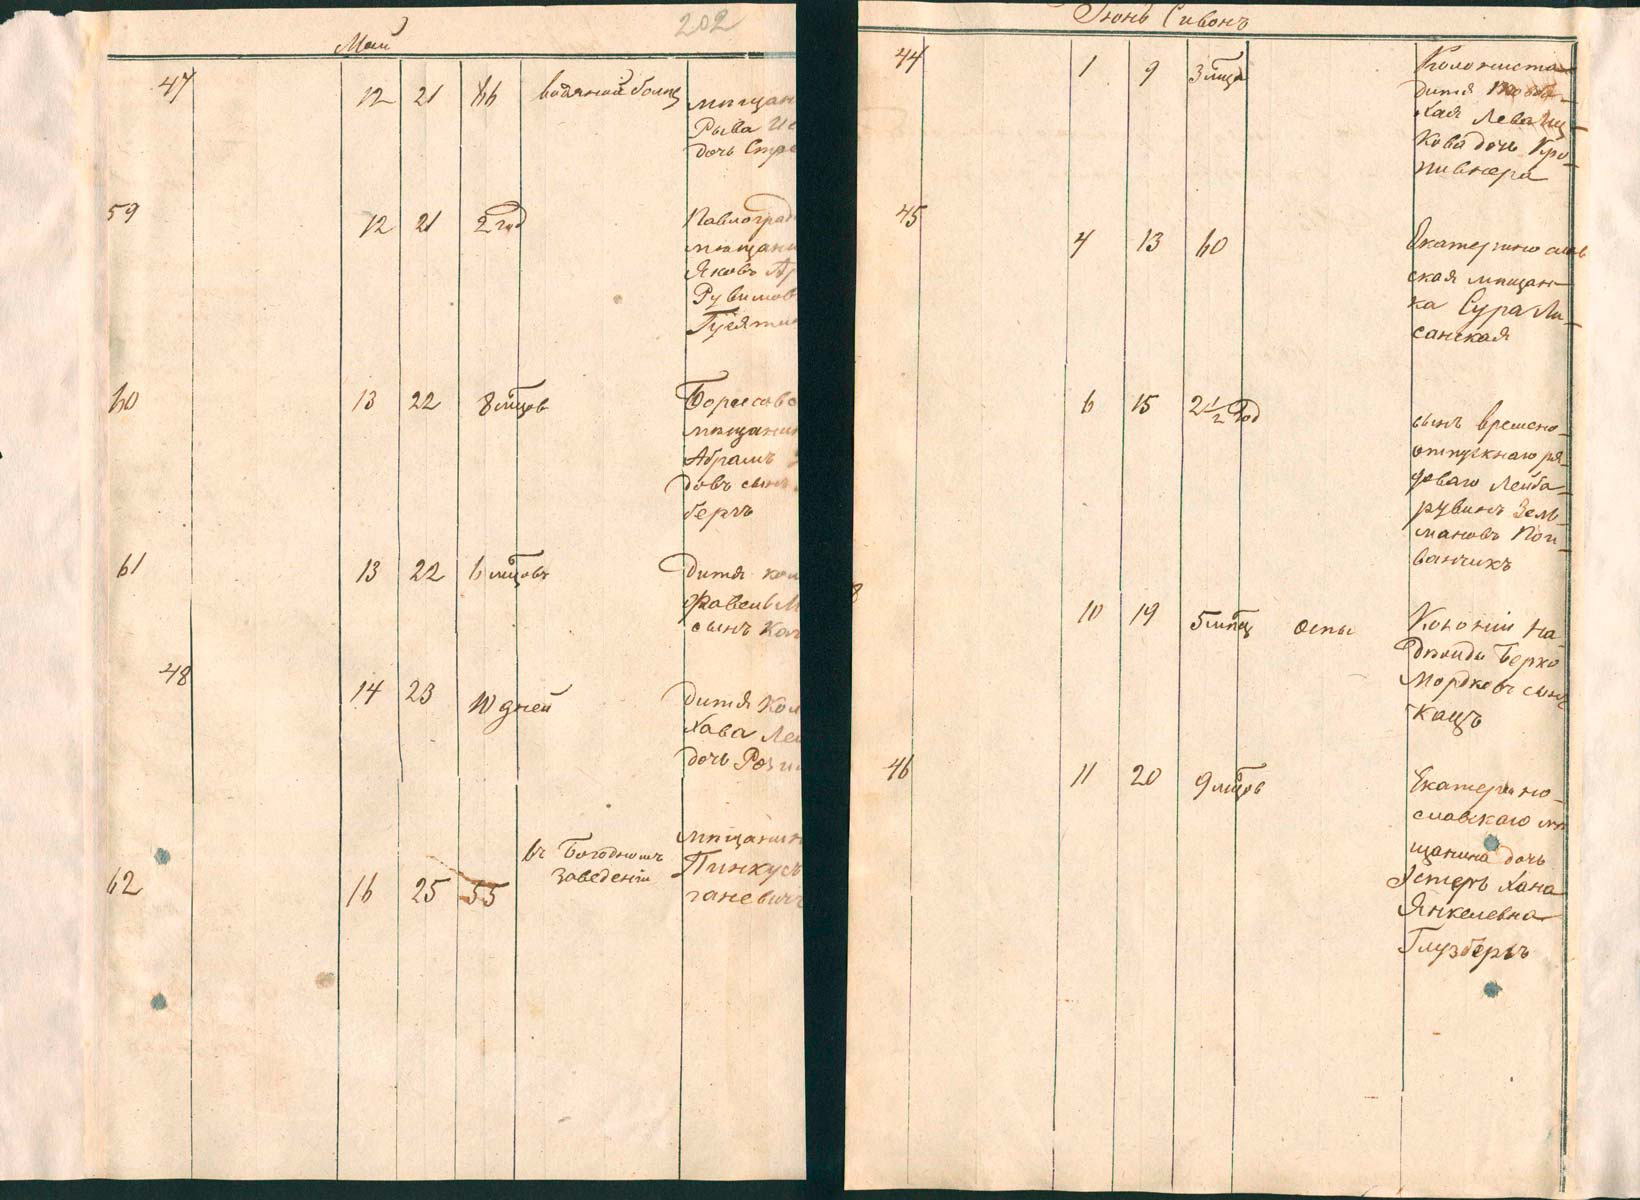 202
Май
47 12 21 66 водяной болез
мѣщан
Рыва
дочь
59 12 21 2 год
Павлоград
мѣщани
Яковъ
Рувимов
60 13 22 8 мѣцов
Борисово
мѣщанин
Абрамъ
довъ сынъ
беръ
61 13 22 6 мѣцовъ
дитя кол
сынъ
48 14 23 10 дней
дитя Кол
Хава Лей
дочь
62 16 25 55
въ Богодномъ
заведеніи
мѣщанин
Пинкусъ
ганевичъ
Іюнь Сивонъ
44 1 9 3 мѣца
Колониста
дитя
Хая
кова дочь Кро-
пивнера
45 4 13 60
Екатеринослав
ская мѣщан-
ка Сура Ли-
санская
6 15 2 1/2 год
сынъ времено-
отпускнаго ря-
доваго Лейба-
рувинъ Зель-
мановъ
ванчикъ
8 10 19 5 мѣц оспы
Колоніи На
Берко
Мордковъ сынъ
Кацъ
46 11 20 9 мѣцов
Екатерино-
славскаго мѣ
щанина дочь
Эстеръ Хана
Янкелевна
Глузберъ